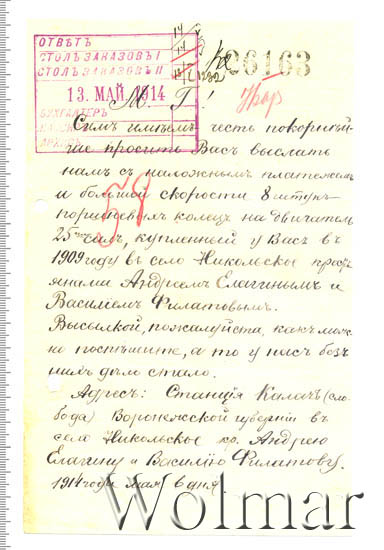 ОТВѢТЪ
СТОЛЪ ЗАКАЗОВЪ I
СТОЛЪ ЗАКАЗОВЪ II
13 МАЙ 1914
БУХГАЛТЕРЪ
06163
М. Г!
Симъ имѣемъ честь покорнѣй-
ше просить Васъ выслать
намъ съ наложнымъ платежемъ
и большой скорости 8 штукъ
поршневыхъ колецъ на двигатель
25 силъ, купленный у Васъ въ
1909 году въ село Никольское крест
янами Андреемъ Елагинымъ и
Василіемъ Филатовымъ.
Высылкой, пожалуйста, какъ мож-
но поспѣшите, а то у насъ безъ
нихъ дѣло стало.
Адресъ: Станція Калачъ (сло-
бода) Воронежской губерніи въ
село Никольское Андрею
Елагину и Василію Филатову.
1914 года мая 6 дня.
Wolmar